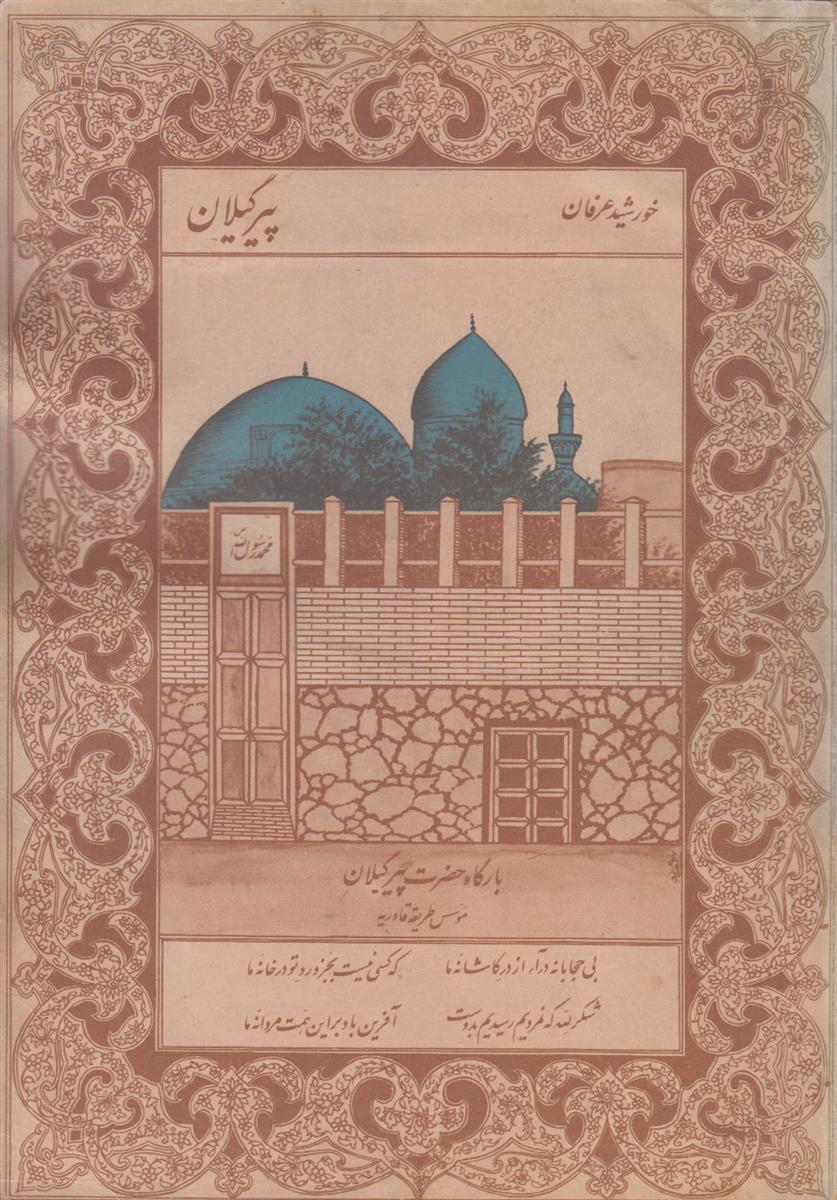 خورشید عرفان
پیر گیلان
محمد رسول الله
بارگاه حضرت پیر گیلان
مؤسس طریقه قادریه
بی حجابانه درآ، از در کاشانه ما که کسی نیست بجز ورد تو در خانه ما
شکر لله که نمردیم رسیدیم بدوست آفرین باد بر این همت مردانه ما